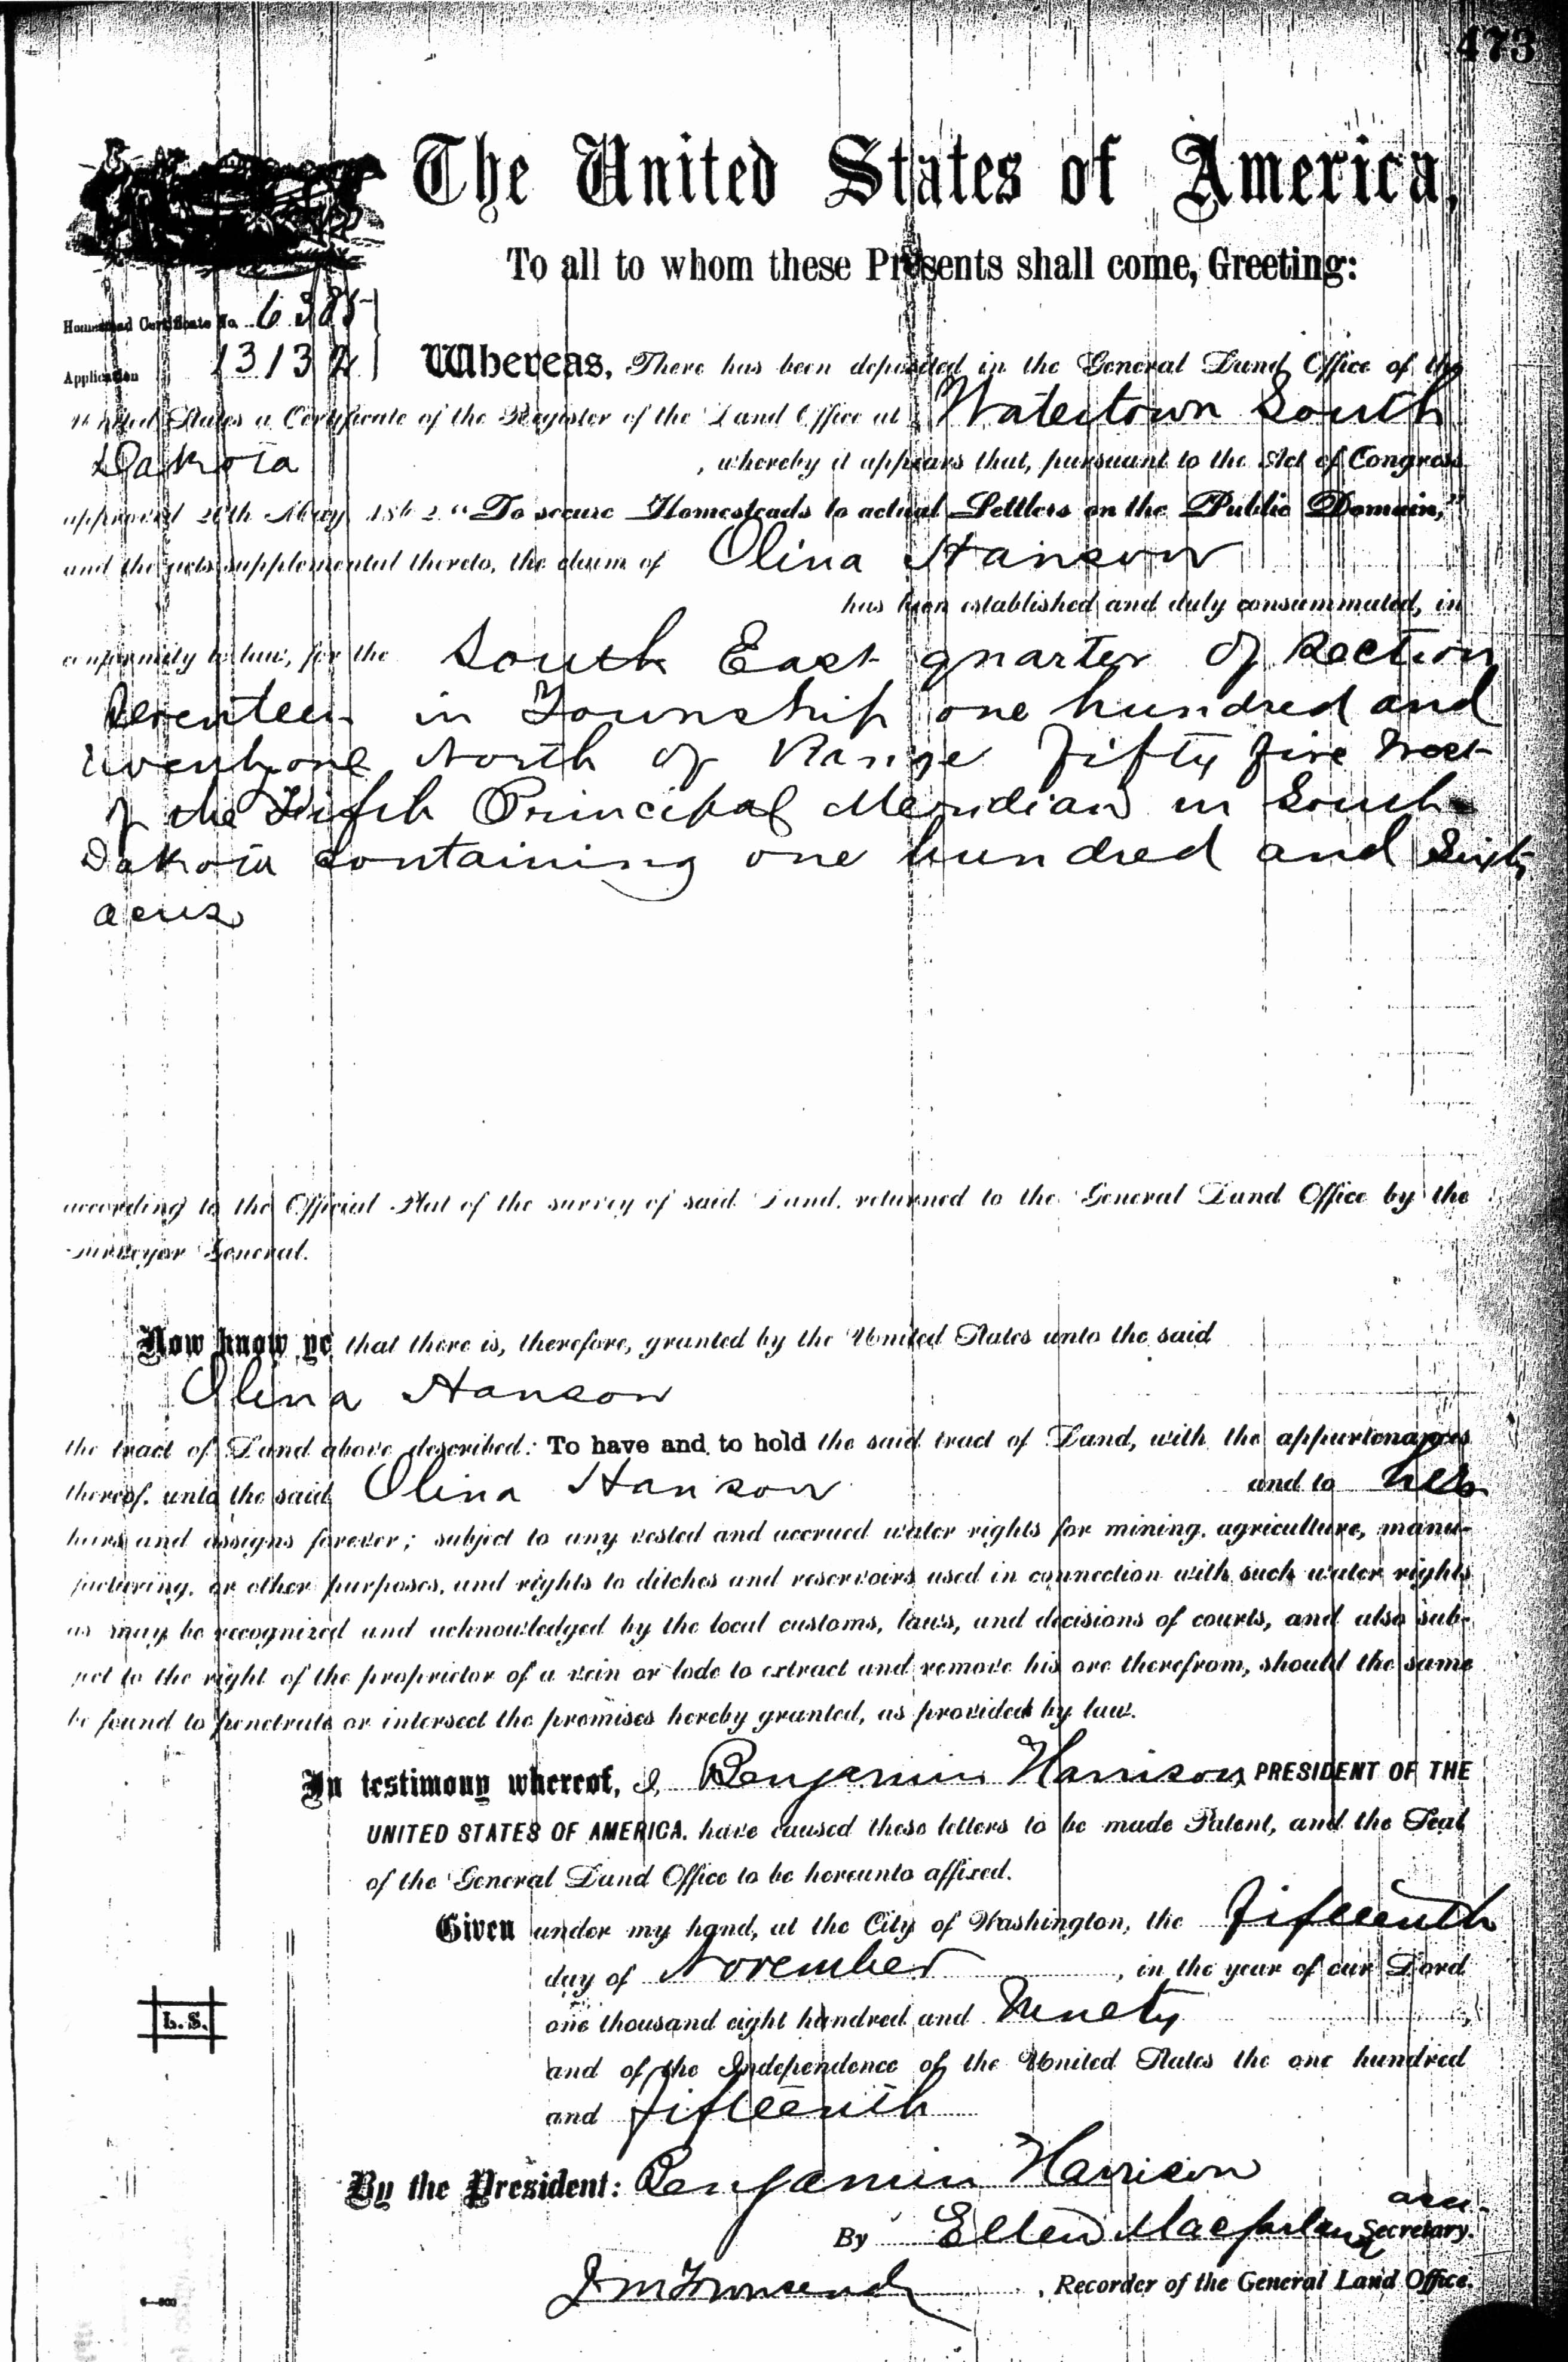 473
The United States of America,
To all to whom these Presents shall come, Greeting:
Homestead Certificate No. 6385
Application 13132
Whereas, There has been deposited in the General Land Office of the
United States a Certificate of the Register of the Land Office at Watertown South
Dakota , whereby it appears that, pursuant to the Act of Congress
approved 20th May, 1862, "To secure Homesteads to actual Settlers on the Public Domain,"
and the acts supplemental thereto, the claim of Olina Hanson
has been established and duly consummated, in
conformity to law, for the South East quarter of Section
Seventeen in Township one hundred and
twenty one North of Range fifty five West
of the Fifth Principal Meridian in South
Dakota containing one hundred and Sixty
acres
according to the Official Plat of the survey of said Land, returned to the General Land Office by the
Surveyor General.
Now know ye that there is, therefore, granted by the United States unto the said
Olina Hanson
the tract of Land above described: To have and to hold the said tract of Land, with the appurtenances
thereof, unto the said Olina Hanson and to her
heirs and assigns forever; subject to any vested and accrued water rights for mining, agriculture, manu-
facturing, or other purposes, and rights to ditches and reservoirs used in connection with such water rights
as may be recognized and acknowledged by the local customs, laws, and decisions of courts, and also sub-
ject to the right of the proprietor of a vein or lode to extract and remove his ore therefrom, should the same
be found to penetrate or intersect the premises hereby granted, as provided by law.
In testimony whereof, I, Benjamin Harrison, PRESIDENT OF THE
UNITED STATES OF AMERICA, have caused these letters to be made Patent, and the Seal
of the General Land Office to be hereunto affixed.
Given under my hand, at the City of Washington, the fifteenth
day of November , in the year of our Lord
one thousand eight hundred and Ninety ,
L. S.
and of the Independence of the United States the one hundred
and fifteenth
By the President: Benjamin Harrison
By Ellen Macfarland asst. Secretary.
J M Townsend , Recorder of the General Land Office.